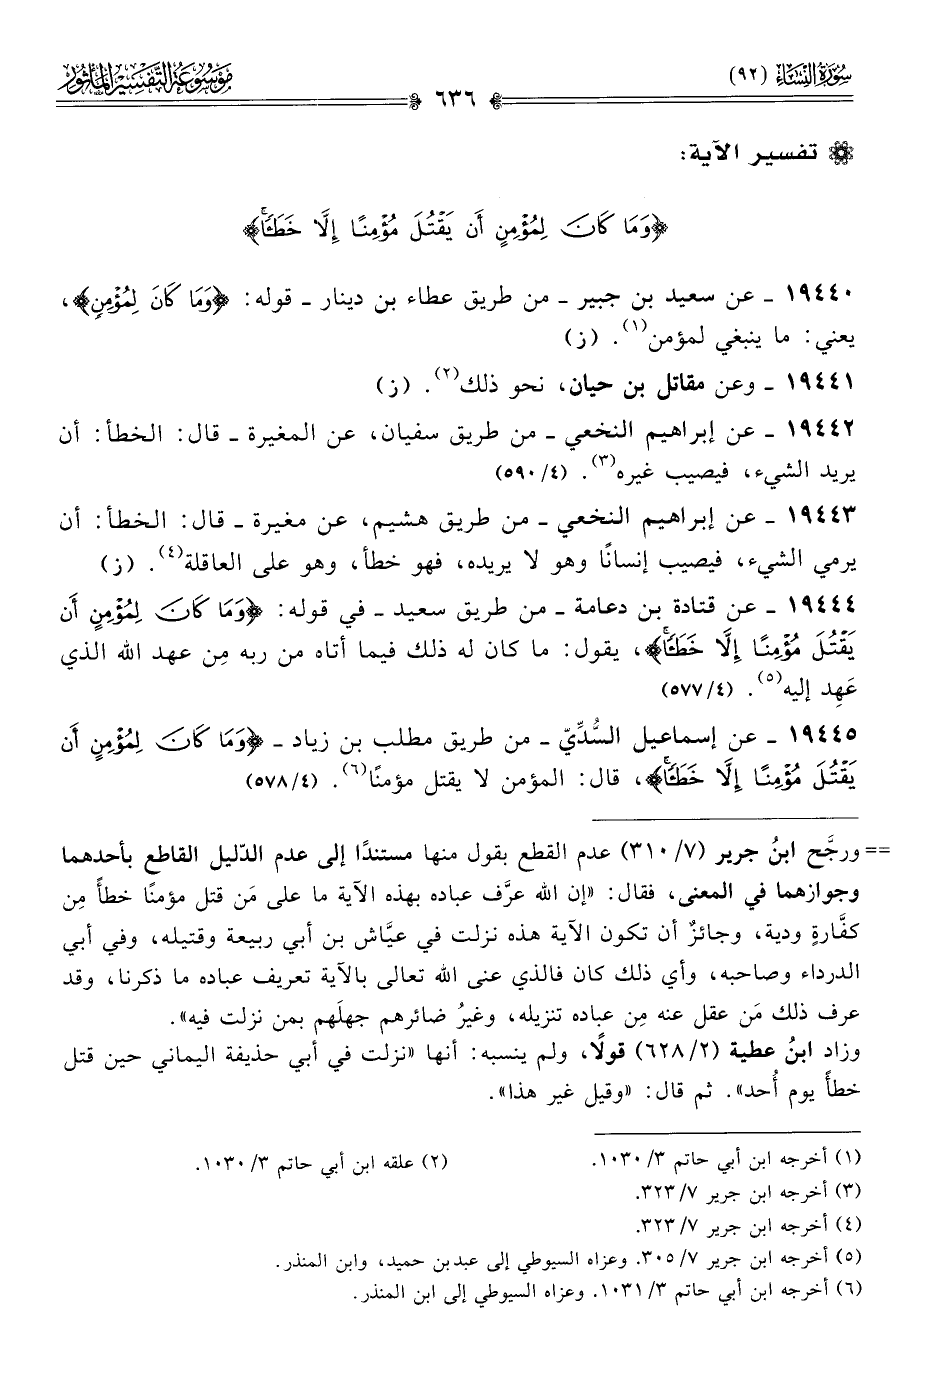 سُورَةُ النِّسَاءِ (٩٢)
مَوْسُوعَةُ التَّفْسِيرِ المَأْثُورِ
٦٣٦
تفسير الآية:
﴿وَمَا كَانَ لِمُؤْمِنٍ أَن يَقْتُلَ مُؤْمِنًا إِلَّا خَطَـًٔاۚ﴾
١٩٤٤٠ ـ عن سعيد بن جبير ـ من طريق عطاء بن دينار ـ قوله: ﴿وَمَا كَانَ لِمُؤْمِنٍ﴾،
يعني: ما ينبغي لمؤمن(١). (ز)
١٩٤٤١ ـ وعن مقاتل بن حيان، نحو ذلك(٢). (ز)
١٩٤٤٢ ـ عن إبراهيم النخعي ـ من طريق سفيان، عن المغيرة ـ قال: الخطأ: أن
يريد الشيء، فيصيب غيره(٣). (٤/ ٥٩٠)
١٩٤٤٣ ـ عن إبراهيم النخعي ـ من طريق هشيم، عن مغيرة ـ قال: الخطأ: أن
يرمي الشيء، فيصيب إنسانًا وهو لا يريده، فهو خطأ، وهو على العاقلة(٤). (ز)
١٩٤٤٤ ـ عن قتادة بن دعامة ـ من طريق سعيد ـ في قوله: ﴿وَمَا كَانَ لِمُؤْمِنٍ أَن
يَقْتُلَ مُؤْمِنًا إِلَّا خَطَـًٔاۚ﴾، يقول: ما كان له ذلك فيما أتاه من ربه مِن عهد الله الذي
عَهِد إليه(٥). (٤/ ٥٧٧)
١٩٤٤٥ ـ عن إسماعيل السُّدِّيّ ـ من طريق مطلب بن زياد ـ ﴿وَمَا كَانَ لِمُؤْمِنٍ أَن
يَقْتُلَ مُؤْمِنًا إِلَّا خَطَـًٔاۚ﴾، قال: المؤمن لا يقتل مؤمنًا(٦). (٤/ ٥٧٨)
== ورجَّح ابنُ جرير (٧/ ٣١٠) عدم القطع بقول منها مستندًا إلى عدم الدّليل القاطع بأحدهما
وجوازهما في المعنى، فقال: «إن الله عرَّف عباده بهذه الآية ما على مَن قتل مؤمنًا خطأً مِن
كفَّارةٍ ودية، وجائزٌ أن تكون الآية هذه نزلت في عيَّاش بن أبي ربيعة وقتيله، وفي أبي
الدرداء وصاحبه، وأي ذلك كان فالذي عنى الله تعالى بالآية تعريف عباده ما ذكرنا، وقد
عرف ذلك مَن عقل عنه مِن عباده تنزيله، وغيرُ ضائرهم جهلَهم بمن نزلت فيه».
وزاد ابنُ عطية (٢/ ٦٢٨) قولًا، ولم ينسبه: أنها «نزلت في أبي حذيفة اليماني حين قتل
خطأً يوم أُحد». ثم قال: «وقيل غير هذا».
(١) أخرجه ابن أبي حاتم ٣/ ١٠٣٠. (٢) علقه ابن أبي حاتم ٣/ ١٠٣٠.
(٣) أخرجه ابن جرير ٧/ ٣٢٣.
(٤) أخرجه ابن جرير ٧/ ٣٢٣.
(٥) أخرجه ابن جرير ٧/ ٣٠٥. وعزاه السيوطي إلى عبد بن حميد، وابن المنذر.
(٦) أخرجه ابن أبي حاتم ٣/ ١٠٣١. وعزاه السيوطي إلى ابن المنذر.